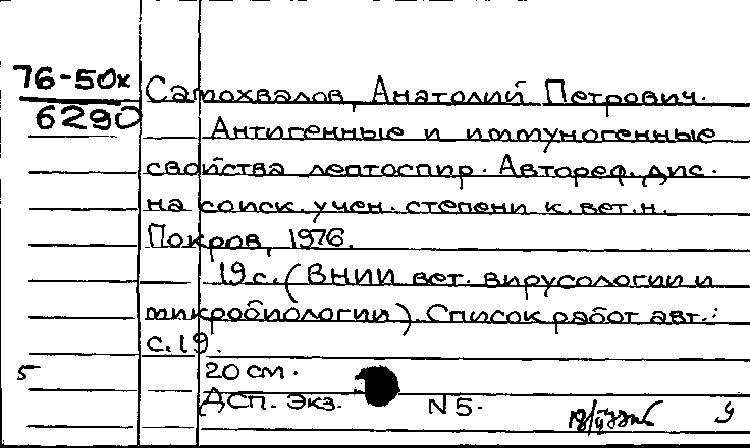 76-50к
6290
Самохвалов, Анатолий Петрович.
Антигенные и иммуногенные
свойства лептоспир. Автореф. дис.
на соиск. учен. степени к. вет. н.
Покров, 1976.
19 с. (ВНИИ вет. вирусологии и
микробиологии). Список работ авт.:
с. 19.
5
20 см.
ДСП. Экз. N 5.